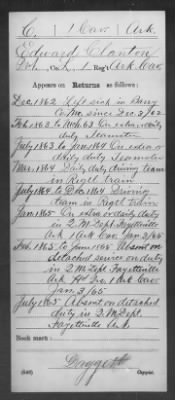 C. | 1 Cav. | Ark.
Edward Clanton
Pvt., Co. L, 1 Reg't Ark. Cav.
Appears on Returns as follows:
Dec. 1862 Left sick in Barry
Co. Mo. since Dec 3/62
Feb. 1863 to Mch 63 On extra or daily
duty Teamster
July 1863 to Jan 1864 On extra or
daily duty Teamster
Mar. 1864 Daily duty driving team
in Regtl train
July 1864 to Dec 1864 Driving
team in Regtl train
Jan. 1865 On extra or daily duty
in Q.M. Dept. Fayetteville
Ark 1 Ark Cav. Jan 3/65
Feb. 1865 to June 1865 Absent on
detached service on duty
in Q.M. Dept. Fayetteville
Ark. 1 Ark Cav
Jan 3/65
July 1865 Absent on detached
duty in Q.M. Dept.
Fayetteville Ark.
Book mark:
Daggett
Copyist.